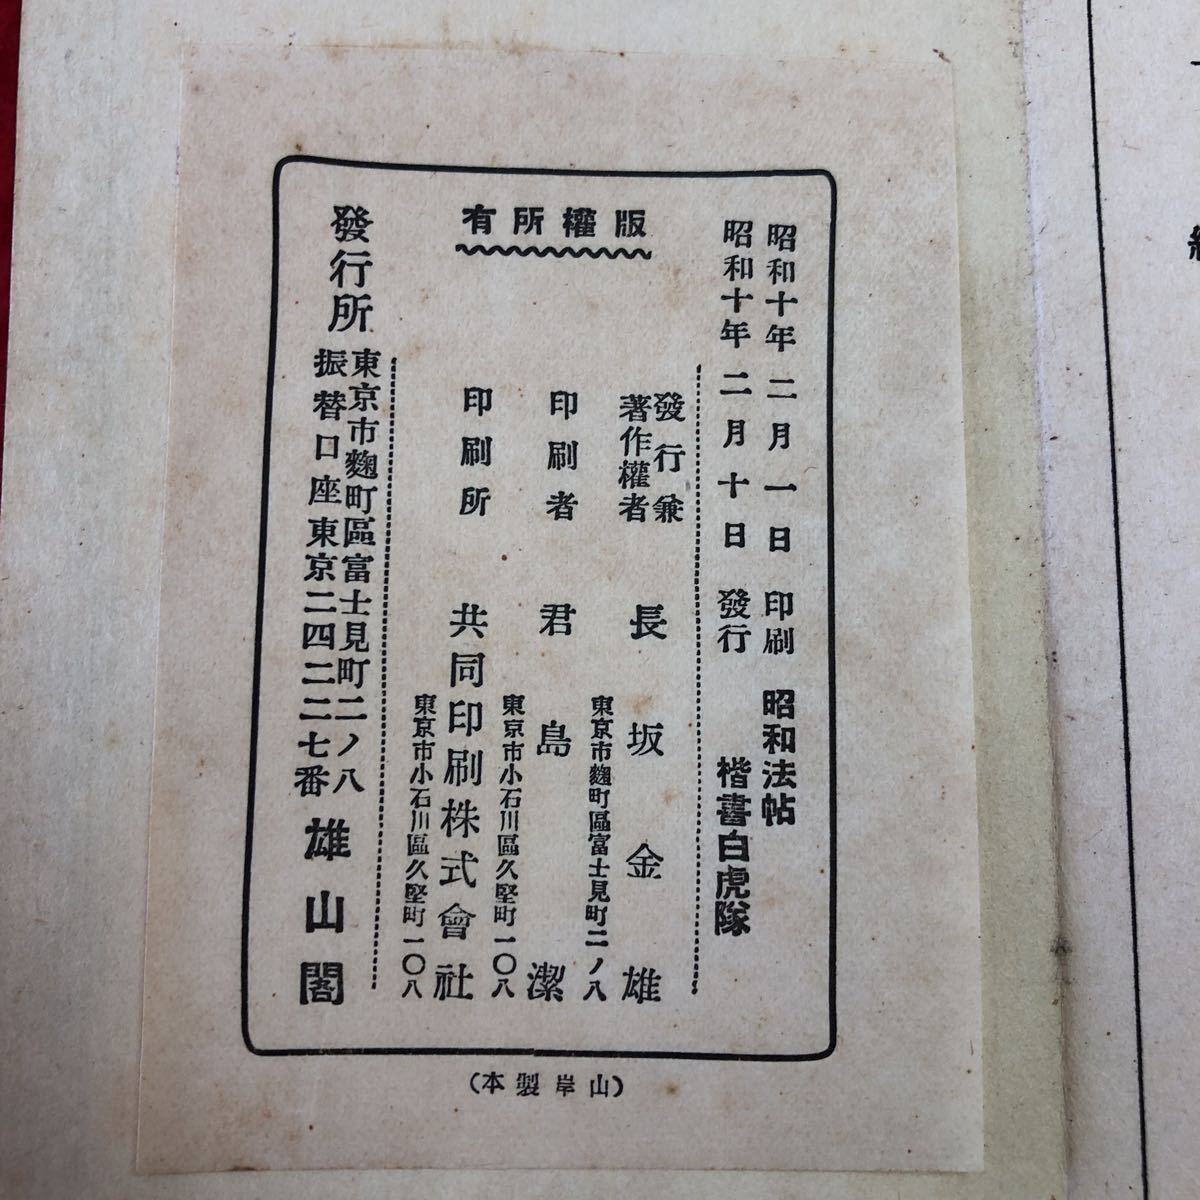 昭和十年二月一日印刷
昭和十年二月十日發行
昭和法帖
楷書白虎隊
版權所有
發行兼
著作權者
長坂金雄
東京市麴町區富士見町二ノ八
印刷者
君島潔
東京市小石川區久堅町一〇八
印刷所
共同印刷株式會社
東京市小石川區久堅町一〇八
發行所
東京市麴町區富士見町二ノ八
振替口座東京二四二二七番
雄山閣
(山岸製本)